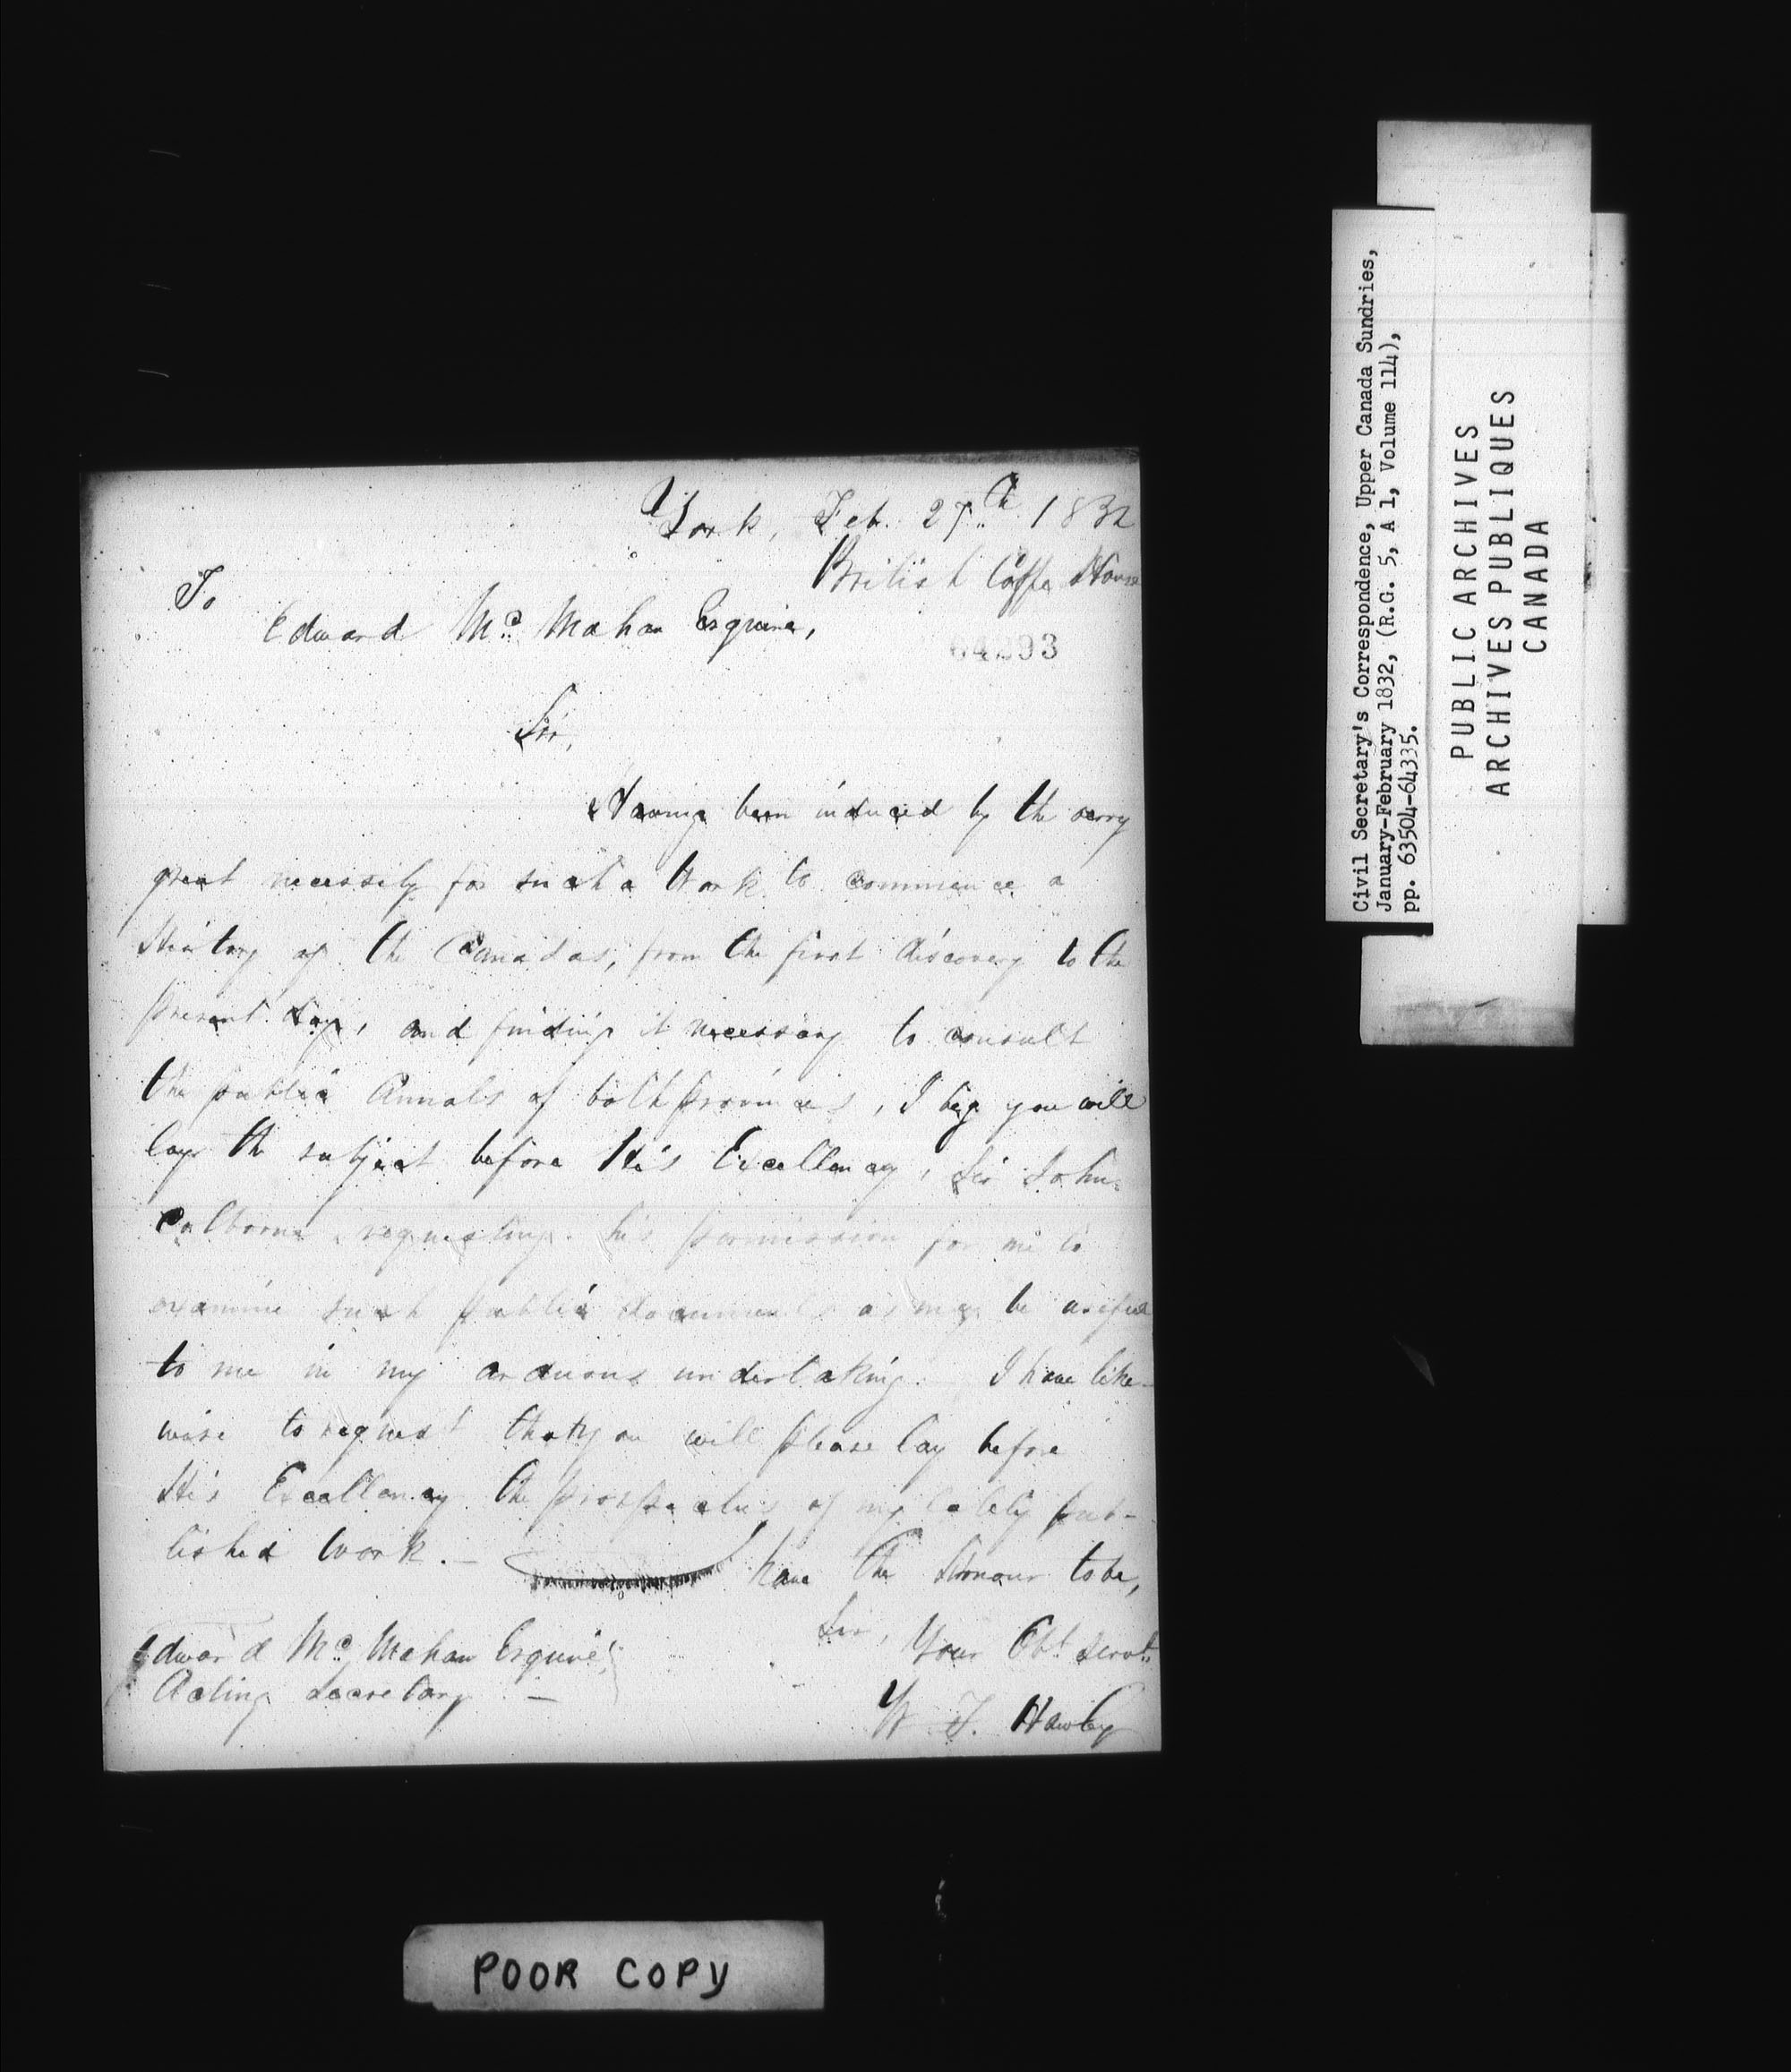 York, Feb. 27th 1832
British Coffe House
To
Edward Mc Mahon Esquire,
64293
Sir,
Having been induced by the very
great necessity for such a Work to commence a
History of the Canadas, from the first discovery to the
present day, and finding it necessary to consult
the public Annals of both provinces, I beg you will
lay the subject before His Excellency, Sir John
Colborne, requesting his permission for me to
examine such public documents as may be useful
to me in my arduous undertaking. I have like-
wise to request that you will please lay before
His Excellency the prospectus of my lately pub-
lished work.—
have the Honour to be,
Sir, Your Obt. Servt.
W F. Hawley
Edward Mc Mahon Esquire,
Acting Secretary —
Civil Secretary's Correspondence, Upper Canada Sundries,
January-February 1832, (R.G. 5, A 1, Volume 114),
pp. 63504-64335.
PUBLIC ARCHIVES
ARCHIVES PUBLIQUES
CANADA
POOR COPY